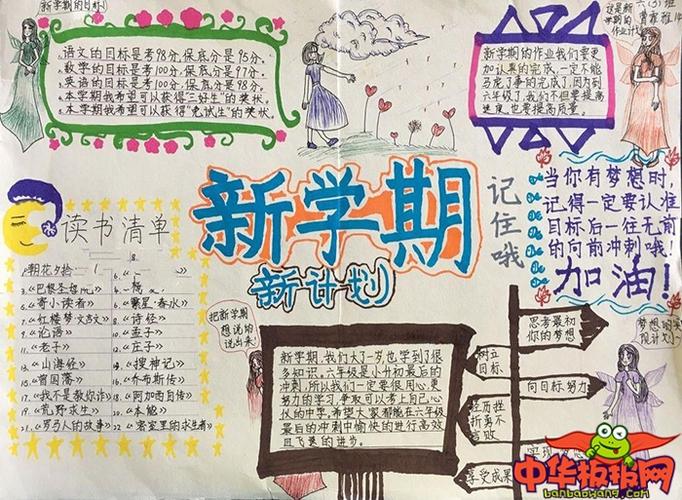 新学期的目标!
1.语文的目标是考98分,保底分是95分。
2.数学的目标是考100分,保底分是97分。
3.英语的目标是考100分,保底分是98分。
4.本学期我希望可以获得"三好生"的奖状。
5.本学期我希望可以获得"免试生"的奖状。
六(3)班
这是新
学期的
作业计
新学期的作业我们要更
加认真的完成,一定不能
马虎了事的完成了,因为到
六年级了,我们不但要提高
速度,也要提高质量。
新学期
新计划
记住哦
当你有梦想时,
记得一定要认准
目标后一往无前
的向前冲刺哦!
加油!
读书清单
朝花夕拾
3.《巴根圣母
5.《寄小读者》
6.《繁星·春水》
7.《红楼梦·文言文》
8.《诗经》
9.《论语》
10.《孟子》
11.《老子》
12.《庄子》
13.《山海经》
14.《搜神记》
15.《曾国藩》
16.《乔布斯传》
17.《我不是教你诈》
18.《阿加西自传》
19.《荒野求生》
20.《本能》
21.《罗马人的故事》
22.《密室里的求生者》
把新学期
想说的
说出来!
新学期,我们大了一岁也学到了很
多知识。六年级是小升初最后的
冲刺,所以我们一定要很用心,更
努力的学习,争取可以考上自己心
仪的中学,希望大家都能在六年级
最后的冲刺中愉快的进行高效
且飞蕴的进步。
思考最初
你的梦想
树立
目标
向目标努力
经历挫
折剪不
言败
享受成果
梦想的实
现计划
中华板报网
banbaowang.com